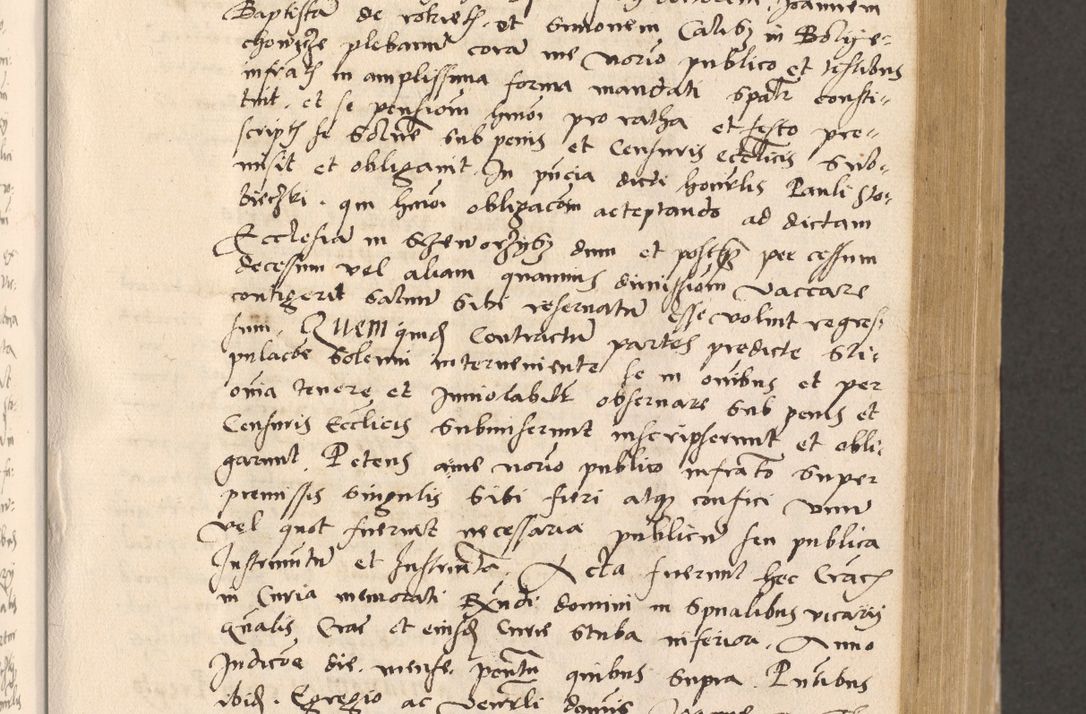 Baptistā de et Simonem Calisz in Bolye-
plebanū corā me norio publico et testibus
infrascr in amplissima forma mandati spālr consti-
tuit, et se pensiom hmoi pro ratha et festo pre-
script se solue sub penis et Censuris ecclicis subo-
misit et obligavit. In pn̄cia dicti honorlis Pauli Slo-
qui hmoi obligacōm acceptando ad dictam
Ecclesiā in dum et postq per cessum
decessum vel aliam quamuis dimissiom vaccare
contigerit saluū sibi reservatū esse voluit regres-
sum. Quem quid Contractū partes predicte sti-
pulacōe solemni interveniente se in oībus et per
oīa tenere et Inviolabilr observare sub penis et
Censuris Ecclicis submiserunt inscripserunt et obli-
garunt. Petens a me norio publico infrato super
premissis singulis sibi fieri atq confici vnū
vel quot fuerint necessaria publicū seu publica
Instrumentū et Instrumta. Acta fuerunt hec Crac
in Curia memorati Rndi domini in spualibus vicarij
gnālis Crac et eiusd Curie stuba inferiori. Anno
Indicōe die mense pontu quibus supra. Pntibus
ibid. Egregio ac venerli domīs